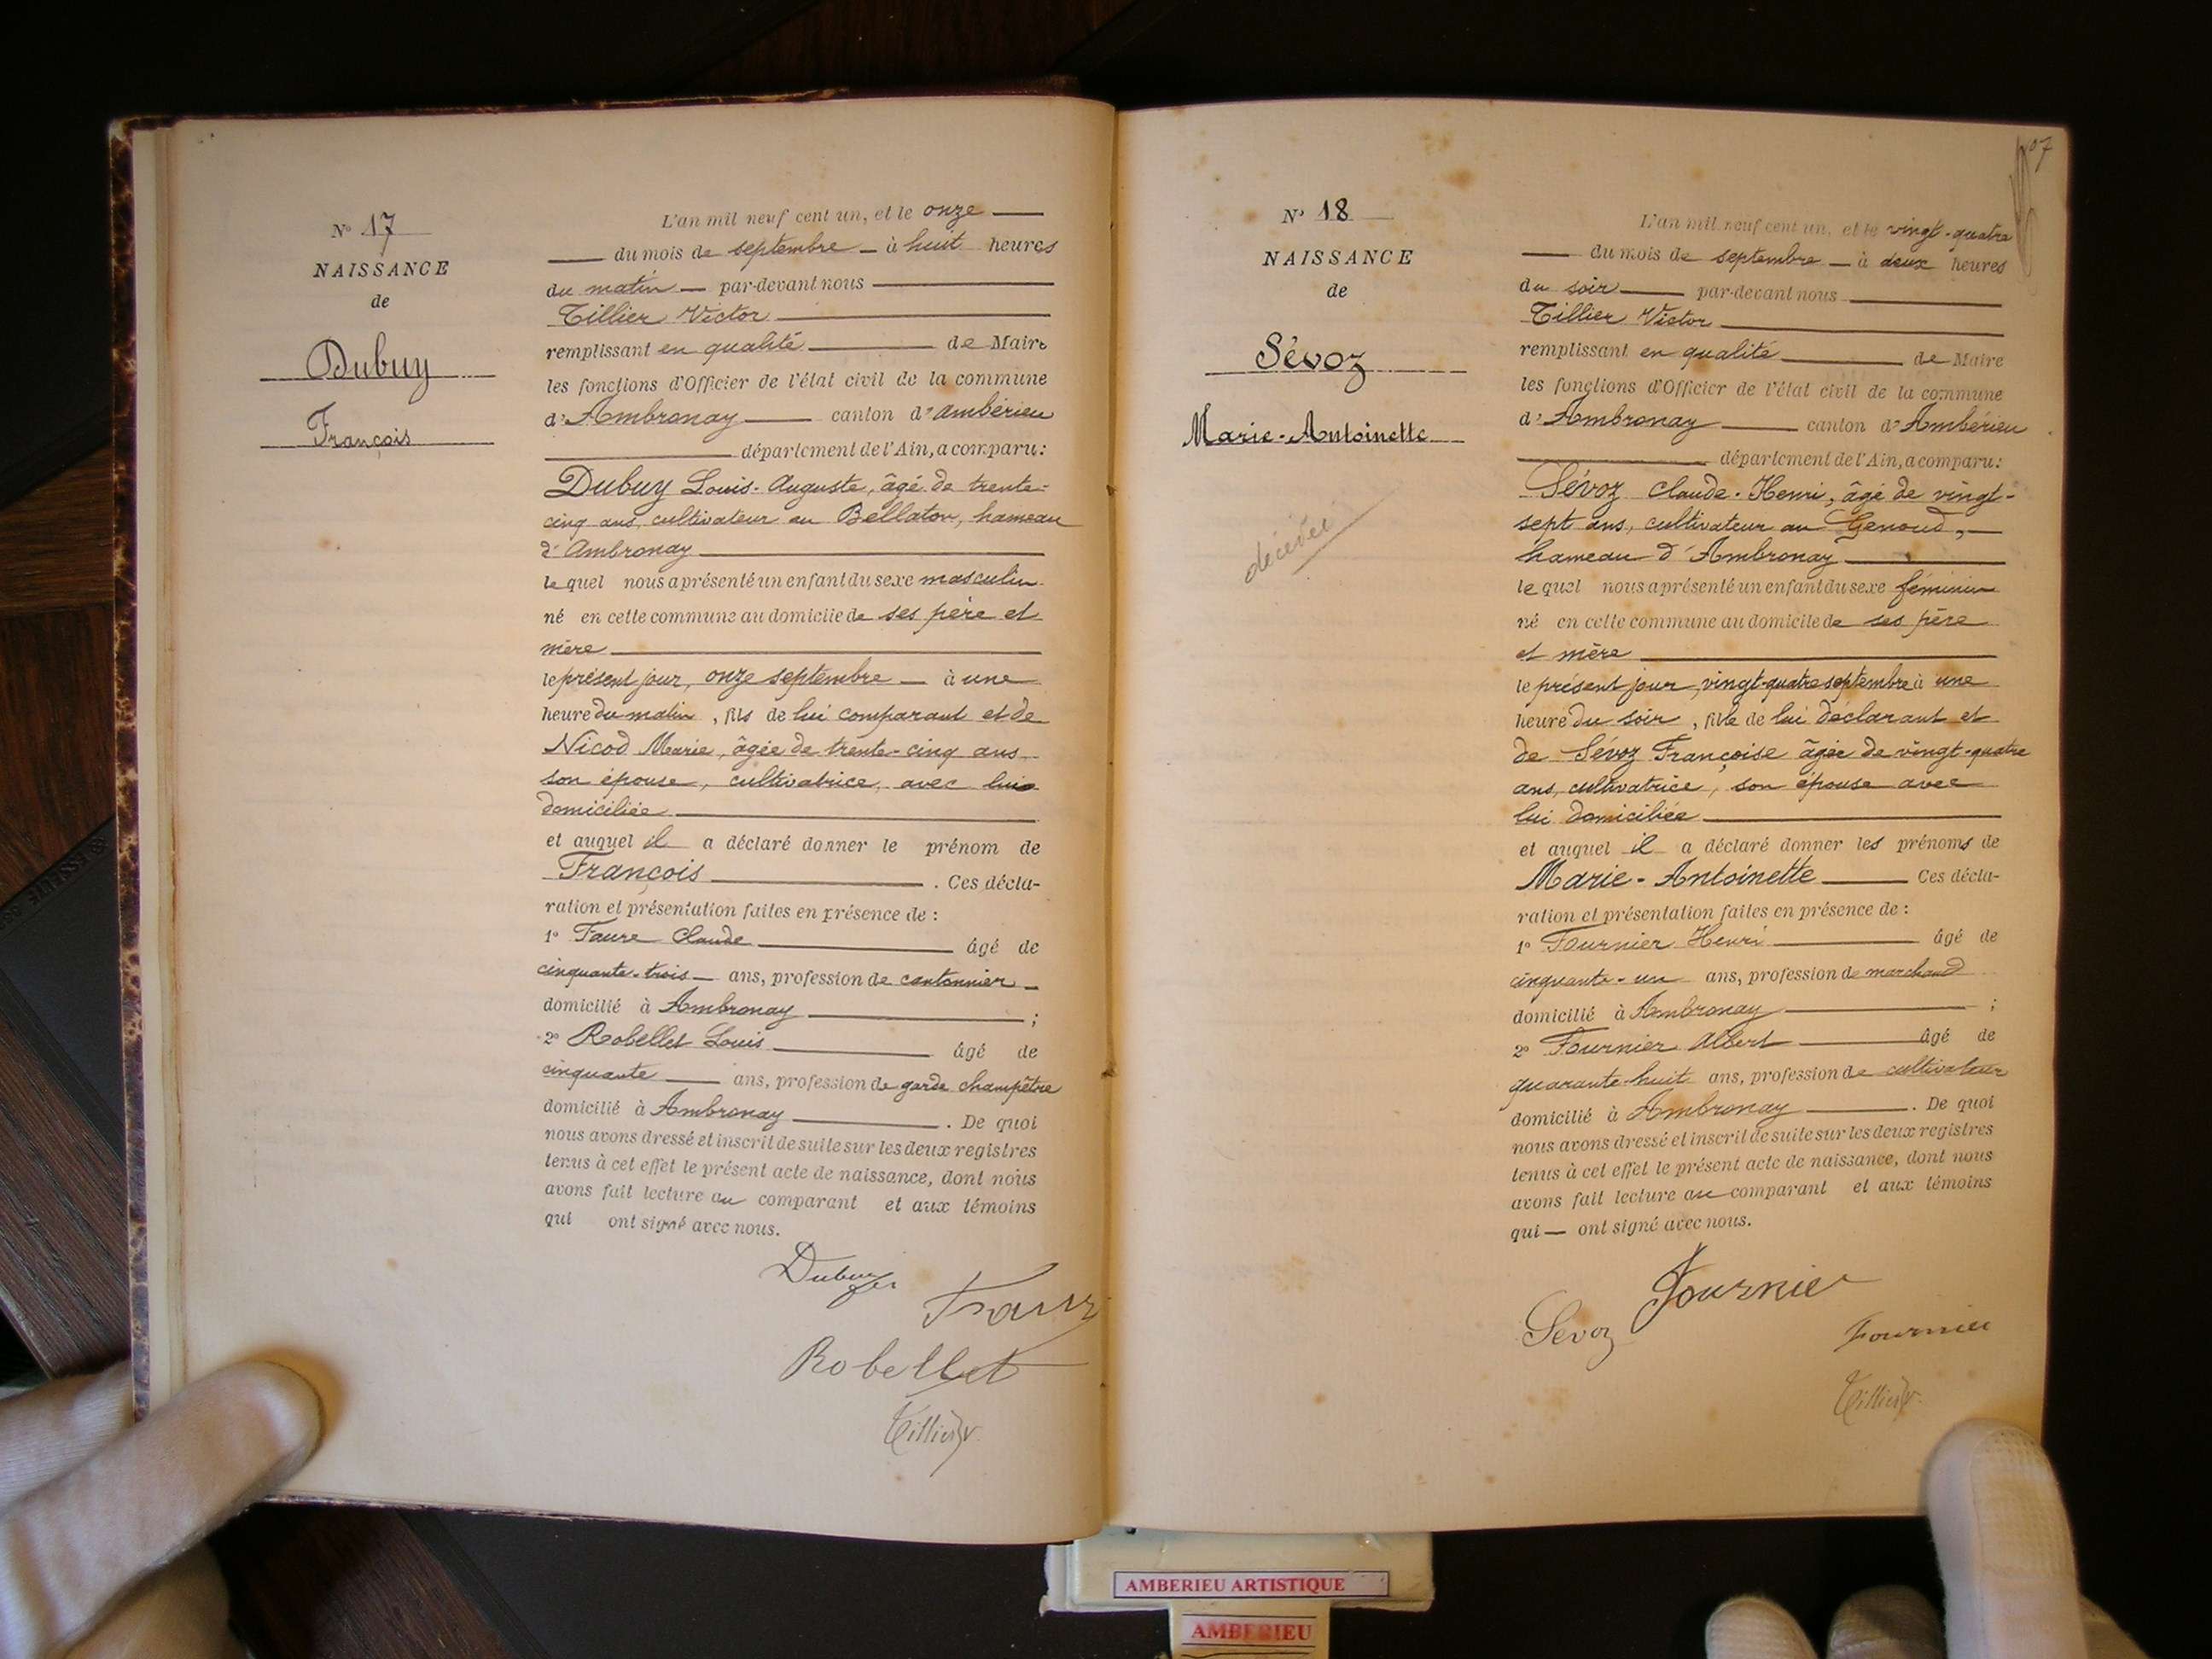 N° 17
NAISSANCE
de
Dubuy
François
L'an mil neuf cent un, et le onze
du mois de septembre à huit heures
du matin par-devant nous
Tillier Victor
remplissant en qualité de Maire
les fonctions d'Officier de l'état civil de la commune
d'Ambronay canton d'Ambérieu
département de l'Ain, a comparu:
Dubuy Louis-Auguste, âgé de trente-
cinq ans, cultivateur au Bellaton, hameau
d'Ambronay
lequel nous a présenté un enfant du sexe masculin
né en cette commune au domicile de ses père et
mère
le présent jour, onze septembre à une
heure du matin, fils de lui comparant et de
Nicod Marie, âgée de trente-cinq ans
son épouse, cultivatrice, avec lui
domiciliée
et auquel il a déclaré donner le prénom de
François. Ces décla-
ration et présentation faites en présence de :
1° Faure Claude âgé de
cinquante-trois ans, profession de cantonnier
domicilié à Ambronay ;
2° Robellet Louis âgé de
cinquante ans, profession de garde champêtre
domicilié à Ambronay. De quoi
nous avons dressé et inscrit de suite sur les deux registres
tenus à cet effet le présent acte de naissance, dont nous
avons fait lecture au comparant et aux témoins
qui ont signé avec nous.
Dubuy
Robellet
Tillier V.
N° 18
NAISSANCE
de
Sévoz
Marie-Antoinette
décédée
L'an mil neuf cent un, et le vingt-quatre
du mois de septembre à deux heures
du soir par-devant nous
Tillier Victor
remplissant en qualité de Maire
les fonctions d'Officier de l'état civil de la commune
d'Ambronay canton d'Ambérieu
département de l'Ain, a comparu:
Sévoz Claude-Henri, âgé de vingt-
sept ans, cultivateur au Genoud,
hameau d'Ambronay
lequel nous a présenté un enfant du sexe féminin
né en cette commune au domicile de ses père
et mère
le présent jour, vingt-quatre septembre à une
heure du soir, fille de lui déclarant et
de Sévoz Françoise âgée de vingt-quatre
ans, cultivatrice, son épouse avec
lui domiciliée
et auquel il a déclaré donner les prénoms de
Marie-Antoinette Ces décla-
ration et présentation faites en présence de :
1° Fournier Henri âgé de
cinquante-un ans, profession de marchand
domicilié à Ambronay ;
2° Fournier Albert âgé de
quarante-huit ans, profession de cultivateur
domicilié à Ambronay. De quoi
nous avons dressé et inscrit de suite sur les deux registres
tenus à cet effet le présent acte de naissance, dont nous
avons fait lecture au comparant et aux témoins
qui ont signé avec nous.
Fournier
Sevoz
Fournier
Tillier V.
AMBERIEU ARTISTIQUE
AMBERIEU